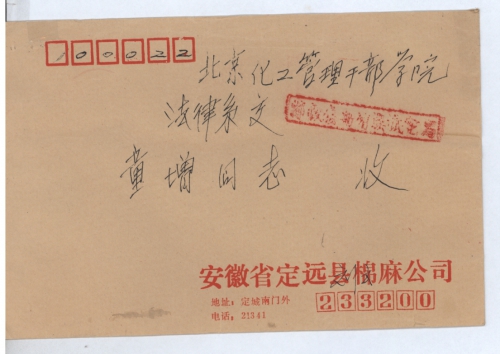 100022
北京化工管理干部学院
法律系交
童增同志 收
安徽省定远县棉麻公司
地址：定城南门外
电话：21341
233200